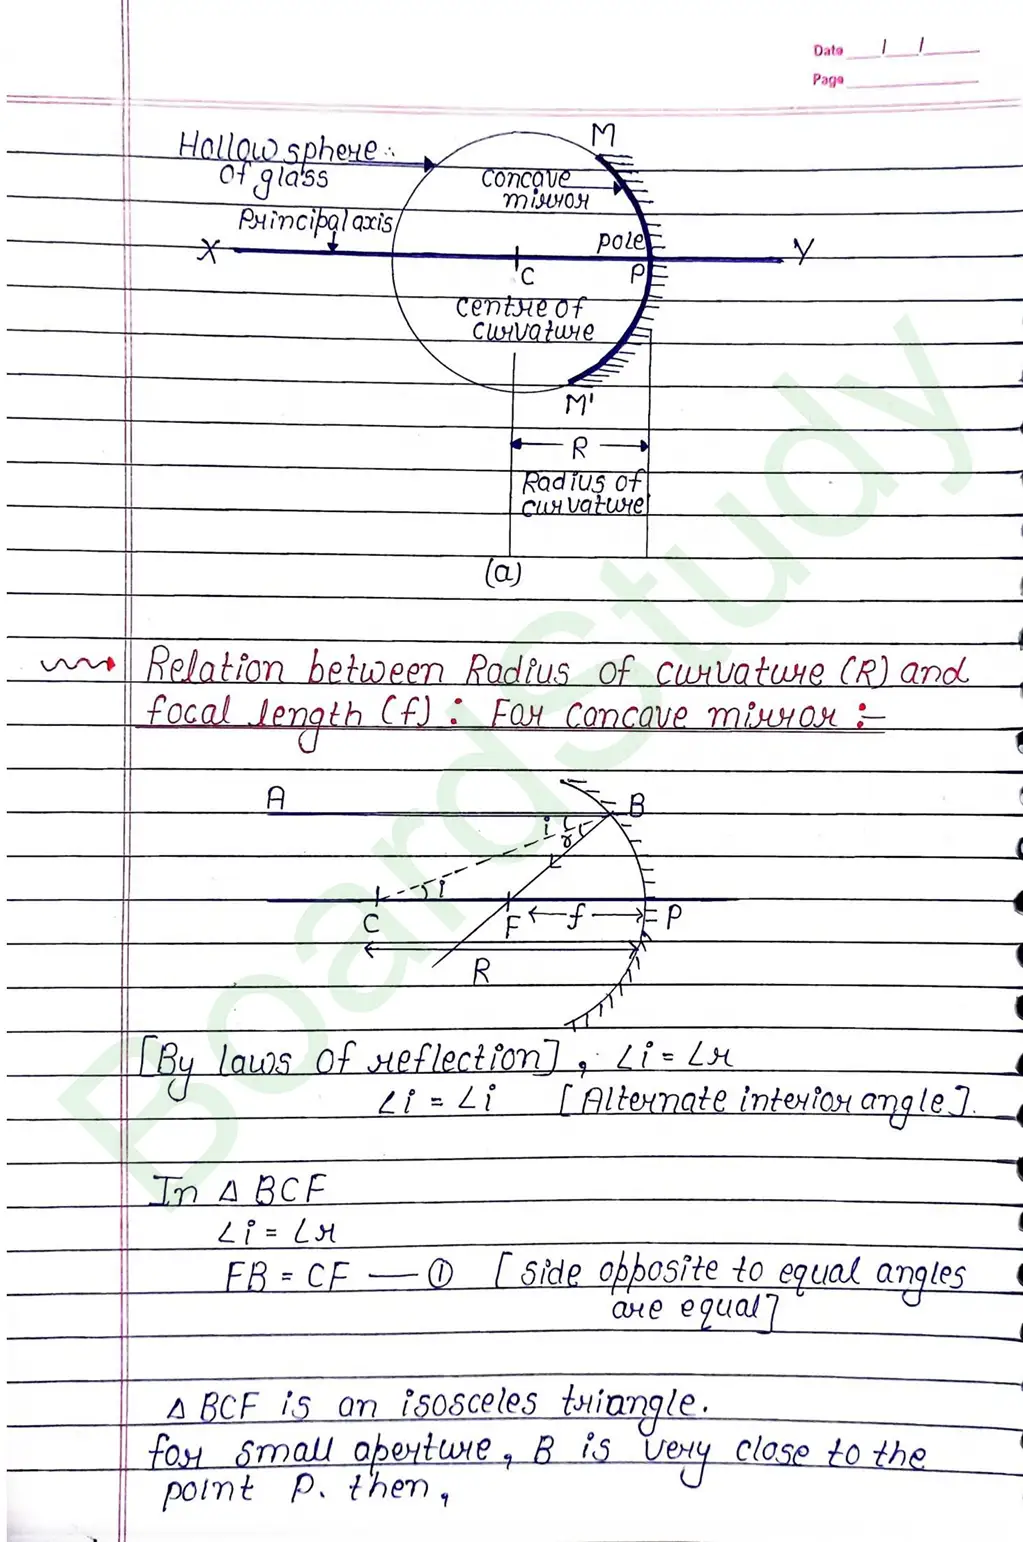 Date / /
Page
M
Hollow sphere
of glass
concave
mirror
Principal axis
X
pole
Y
C
P
centre of
curvature
M'
R
Radius of
curvature
(a)
Relation between Radius of curvature (R) and
focal length (f) : For concave mirror :-
A
B
i
r
i
C
F
f
P
R
[By laws of reflection], ∠i = ∠r
∠i = ∠i [Alternate interior angle].
In Δ BCF
∠i = ∠r
FB = CF — ① [side opposite to equal angles
are equal]
Δ BCF is an isosceles triangle.
for small aperture, B is very close to the
point P. then,
BoardStudy